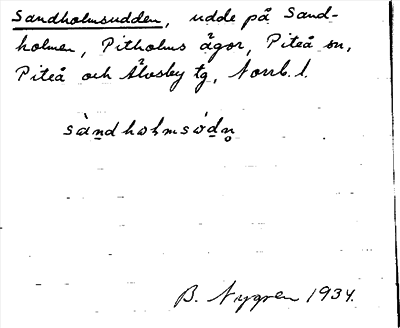 Sandholmsudden, udde på Sand-
holmen, Pitholms ägor, Piteå sn,
Piteå och Älvsby tg, Norrb. l.
sàndhωlmsὼdn̥
B. Nygren 1934.